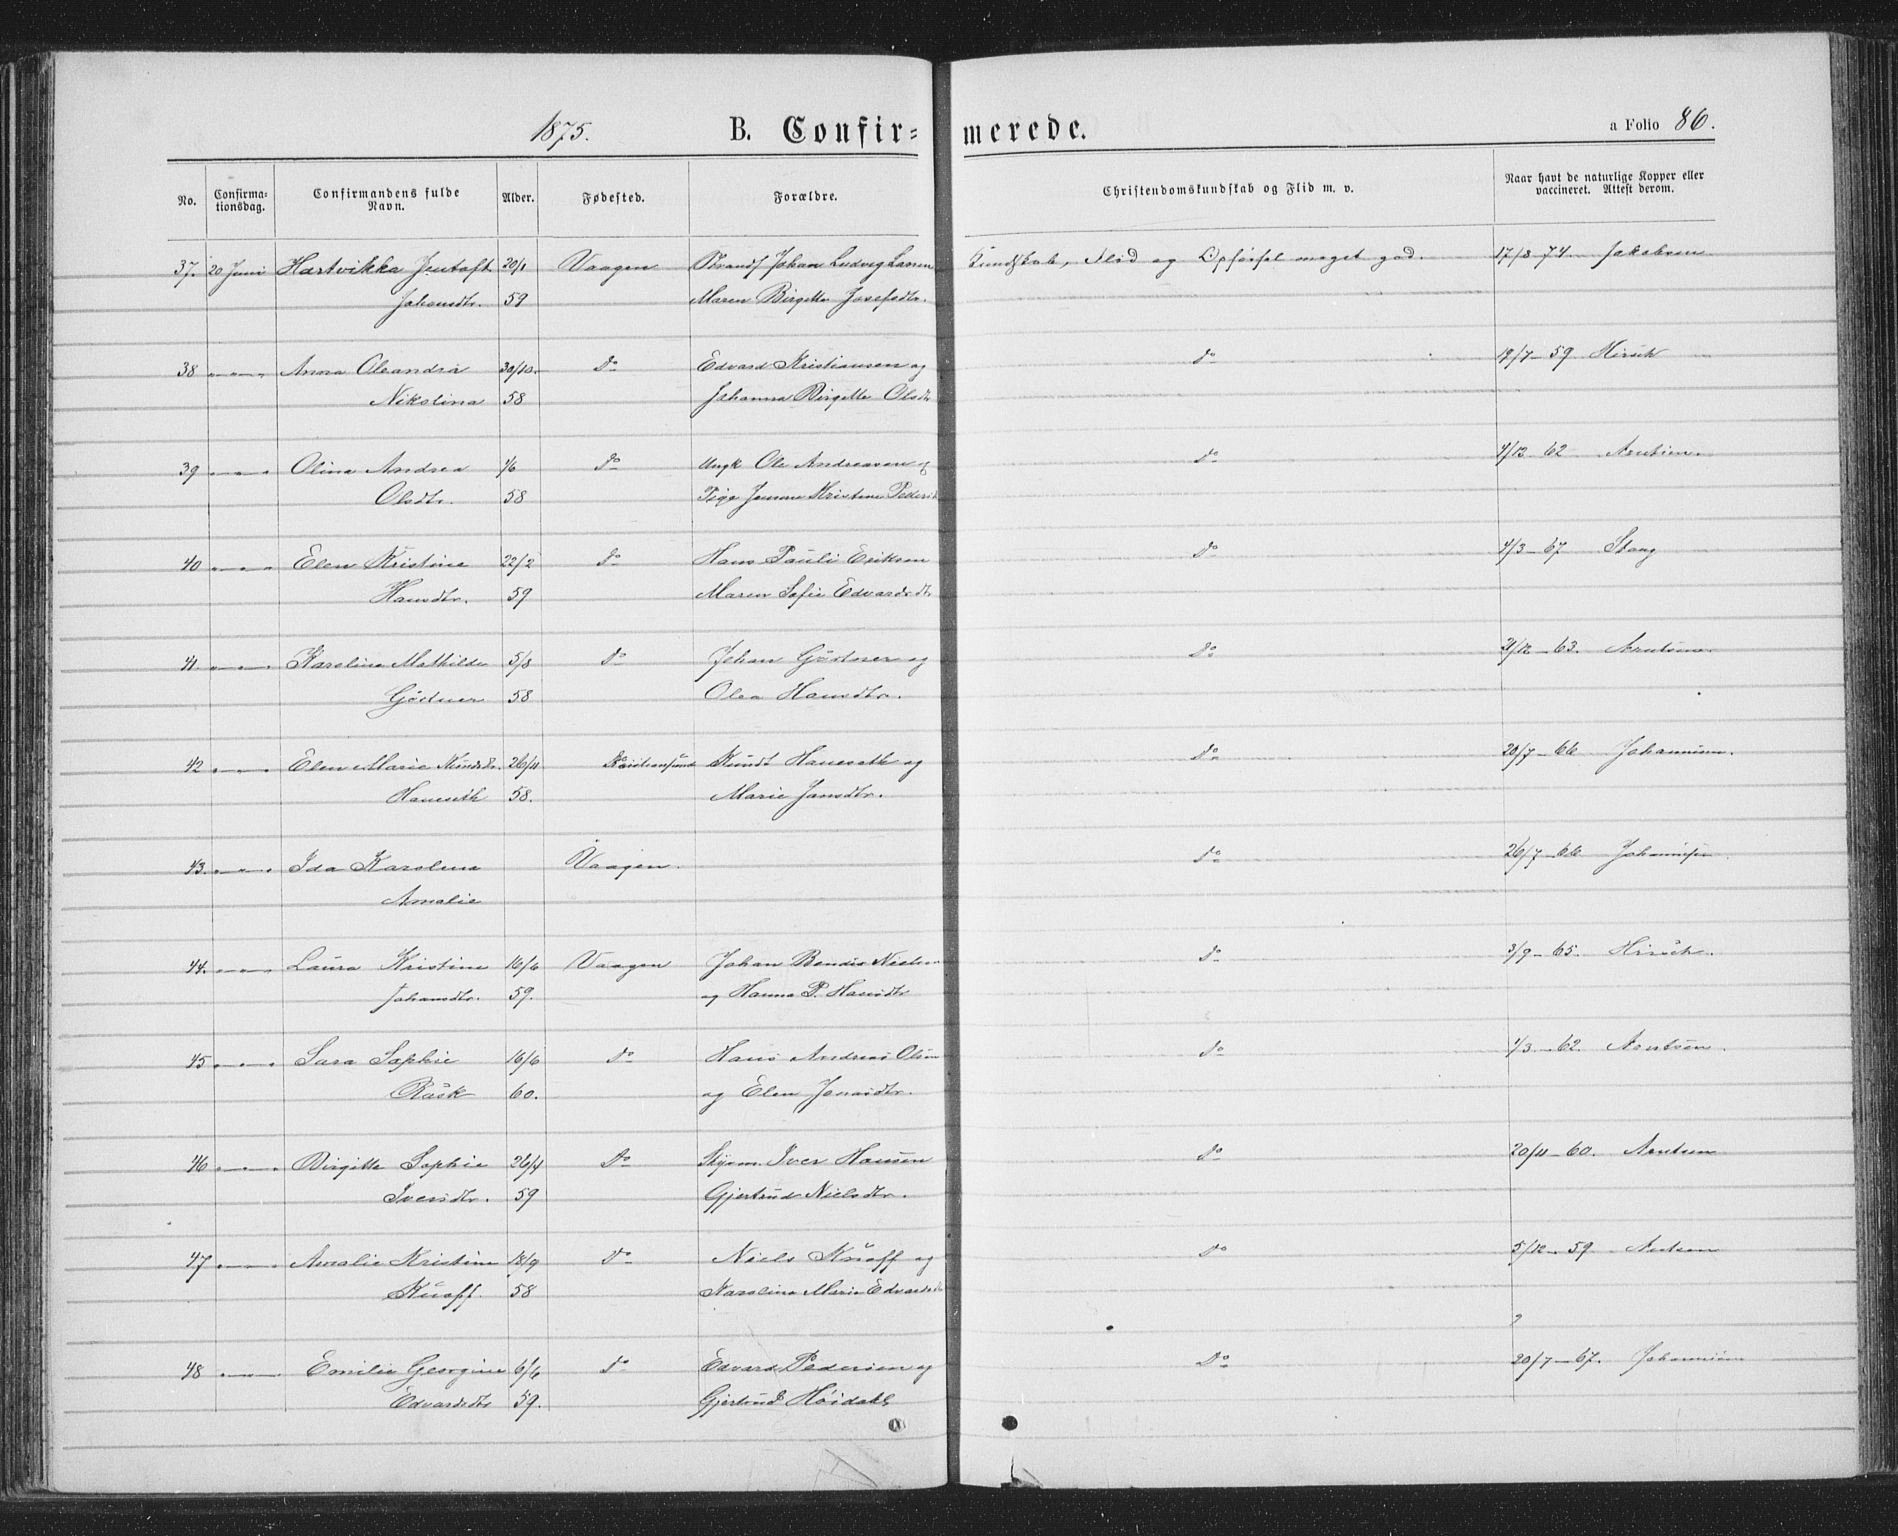 1875. B. Confir- merede. a Folio 86.
No. Confirma-tionsdag. Confirmandens fulde Navn. Alder. Fødested. Forældre. Christendomskundskab og Flid m. v. Naar havt de naturlige Kopper eller vaccineret. Attest derom.
37. 20 Juni Hartvikka Jentoft 20/1 Vaagen Johan Ludvig Larsen Kundskab, Flid og Opførsel meget god. 17/8 74. Jakobsen
Johansdtr. 59 Maren Birgitte Josefsdtr.
38 " " " Anna Oleandra 30/10. do Edvard Kristiansen og do 19/7-59 Hirsch
Nikolina 58 Johanna Birgitte Olsdtr
39 " " " Olina Andrea 1/6 do Ungk Ole Andreasen og do 4/12 62 Arntsen
Olsdtr. 58 Pige Jemine Kristine Peders
40 " " " Elen Kristine 22/2 do Hans Pauli Eriksen do 4/3-67 Stang
Hansdtr. 59 Maren Sofie Edvardsdtr
41. " " " Karolina Mathilde 5/8 do Johan Göstner og do 21/12-63. Arntsen
Göstner 58 Olea Hansdtr.
42 " " " Elen Marie Knudsdtr. 26/11 Kristiansund Knudt Haneseth og do 20/7-66 Johannesen.
Haneseth 58. Marie Jansdtr.
43. " " " Ida Karolina Vaagen. do 26/7-66 Johannesen
Amalie
44. " " " Laura Kristine 16/6 Vaagen Johan Bendix Nielsen do 3/9-65. Hirsch.
Johansdtr. 59. og Hanna P. Hansdtr
45 " " " Sara Sophie 16/6 do Hans Andreas Olsen do 1/3-62. Arntsen.
Rask 60. og Elen Jonasdtr.
46 " " " Birgitte Sophie 26/4 do Skyem. Iver Hansen do 20/11-60. Arntsen
Iversdtr. 59 Gjertrud Nielsdtr.
47 " " " Amalie Kristine 18/9 do Niels Knoff og do 5/12-59 Arntsen
Knoff. 58 Karolina Marie Edvardsdtr
?
48 " " " Emilie Georgine 6/6 do Edvard Pedersen og Do 20/7-67. Johannesen
Edvardsdtr 59. Gjertrud Höidahl